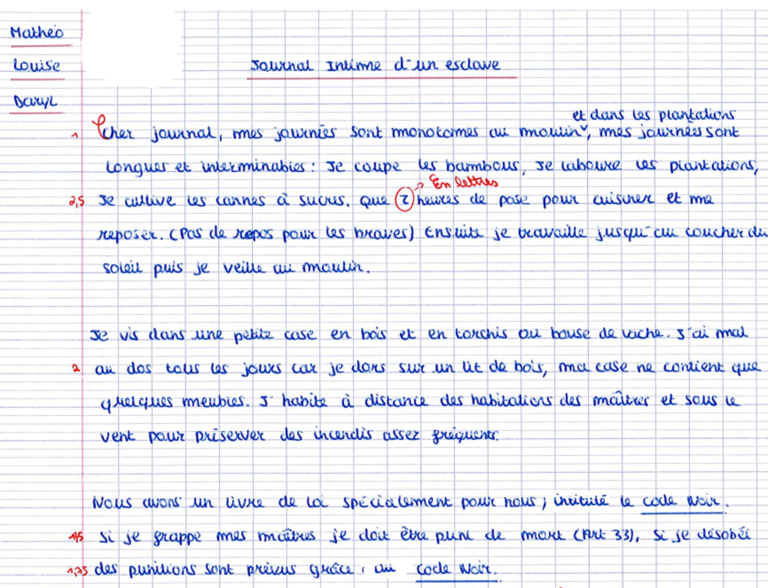 Mathéo
Louise
Daryl
Journal Intime d'un esclave
et dans les plantations
1 Cher journal, mes journées sont monotones au moulin, mes journées sont
longues et interminables : Je coupe les bambous, Je laboure les plantations,
En lettres
2,5 Je cultive les cannes à sucres. Que 2 heures de pose pour cuisiner et me
reposer. (Pas de repos pour les braves) Ensuite je travaille jusqu'au coucher du
soleil puis je veille au moulin.
Je vis dans une petite case en bois et en torchis ou bouse de vache. J'ai mal
2 au dos tous les jours car je dors sur un lit de bois, ma case ne contient que
quelques meubles. J'habite à distance des habitations des maîtres et sous le
vent pour préserver des incendis assez fréquents.
Nous avons un livre de loi spécialement pour nous ; intitulé le code Noir.
Si je frappe mes maîtres je doit être puni de mort (Art 33), si je désobéi
1,75 des punitions sont prévus grâce au code Noir.